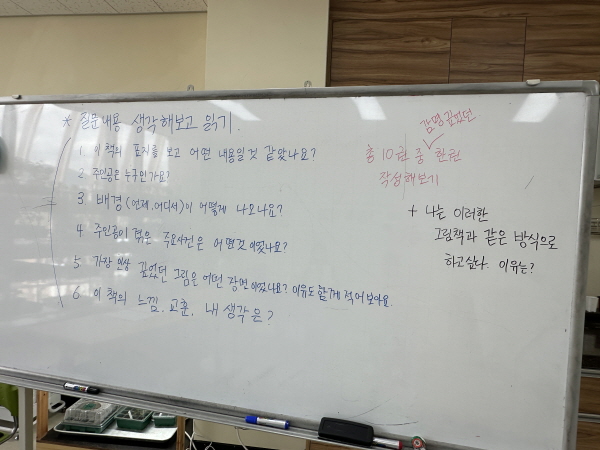 * 질문내용 생각해보고 읽기.
1 이 책의 표지를 보고 어떤 내용일것 같았나요?
2. 주인공은 누구인가요?
3 배경(언제, 어디서)이 어떻게 나오나요?
4 주인공이 겪은 주요사건은 어떤것이었나요?
5 가장 인상 깊었던 그림은 어떤 장면이었나요? 이유도 함께 적어보아요.
6 이 책의 느낌, 교훈, 내 생각은?
감명 깊었던
총 10권 중 한권
작성해보기
+ 나는 이러한
그림책과 같은 방식으로
하고싶다. 이유는?